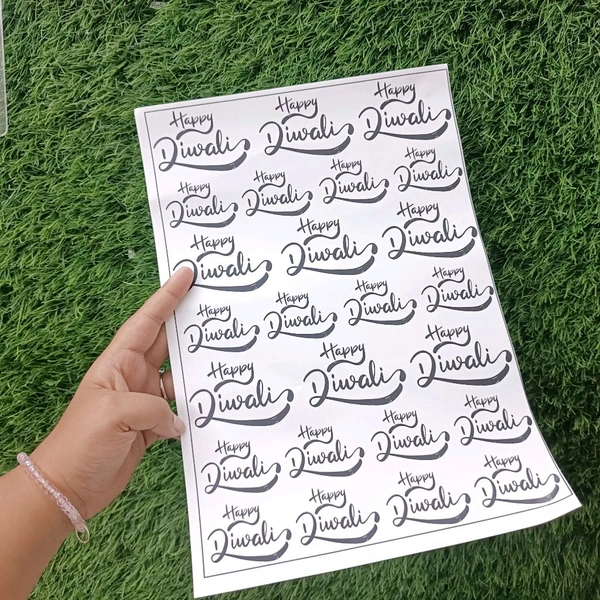 Happy
Diwali
Happy
Diwali
Happy
Diwali
Happy
Diwali
Happy
Diwali
Happy
Diwali
Happy
Diwali
Happy
Diwali
Happy
Diwali
Happy
Diwali
Happy
Diwali
Happy
Diwali
Happy
Diwali
Happy
Diwali
Happy
Diwali
Happy
Diwali
Happy
Diwali
Happy
Diwali
Happy
Diwali
Happy
Diwali
Happy
Diwali
Happy
Diwali
Happy
Diwali
Happy
Diwali
Happy
Diwali